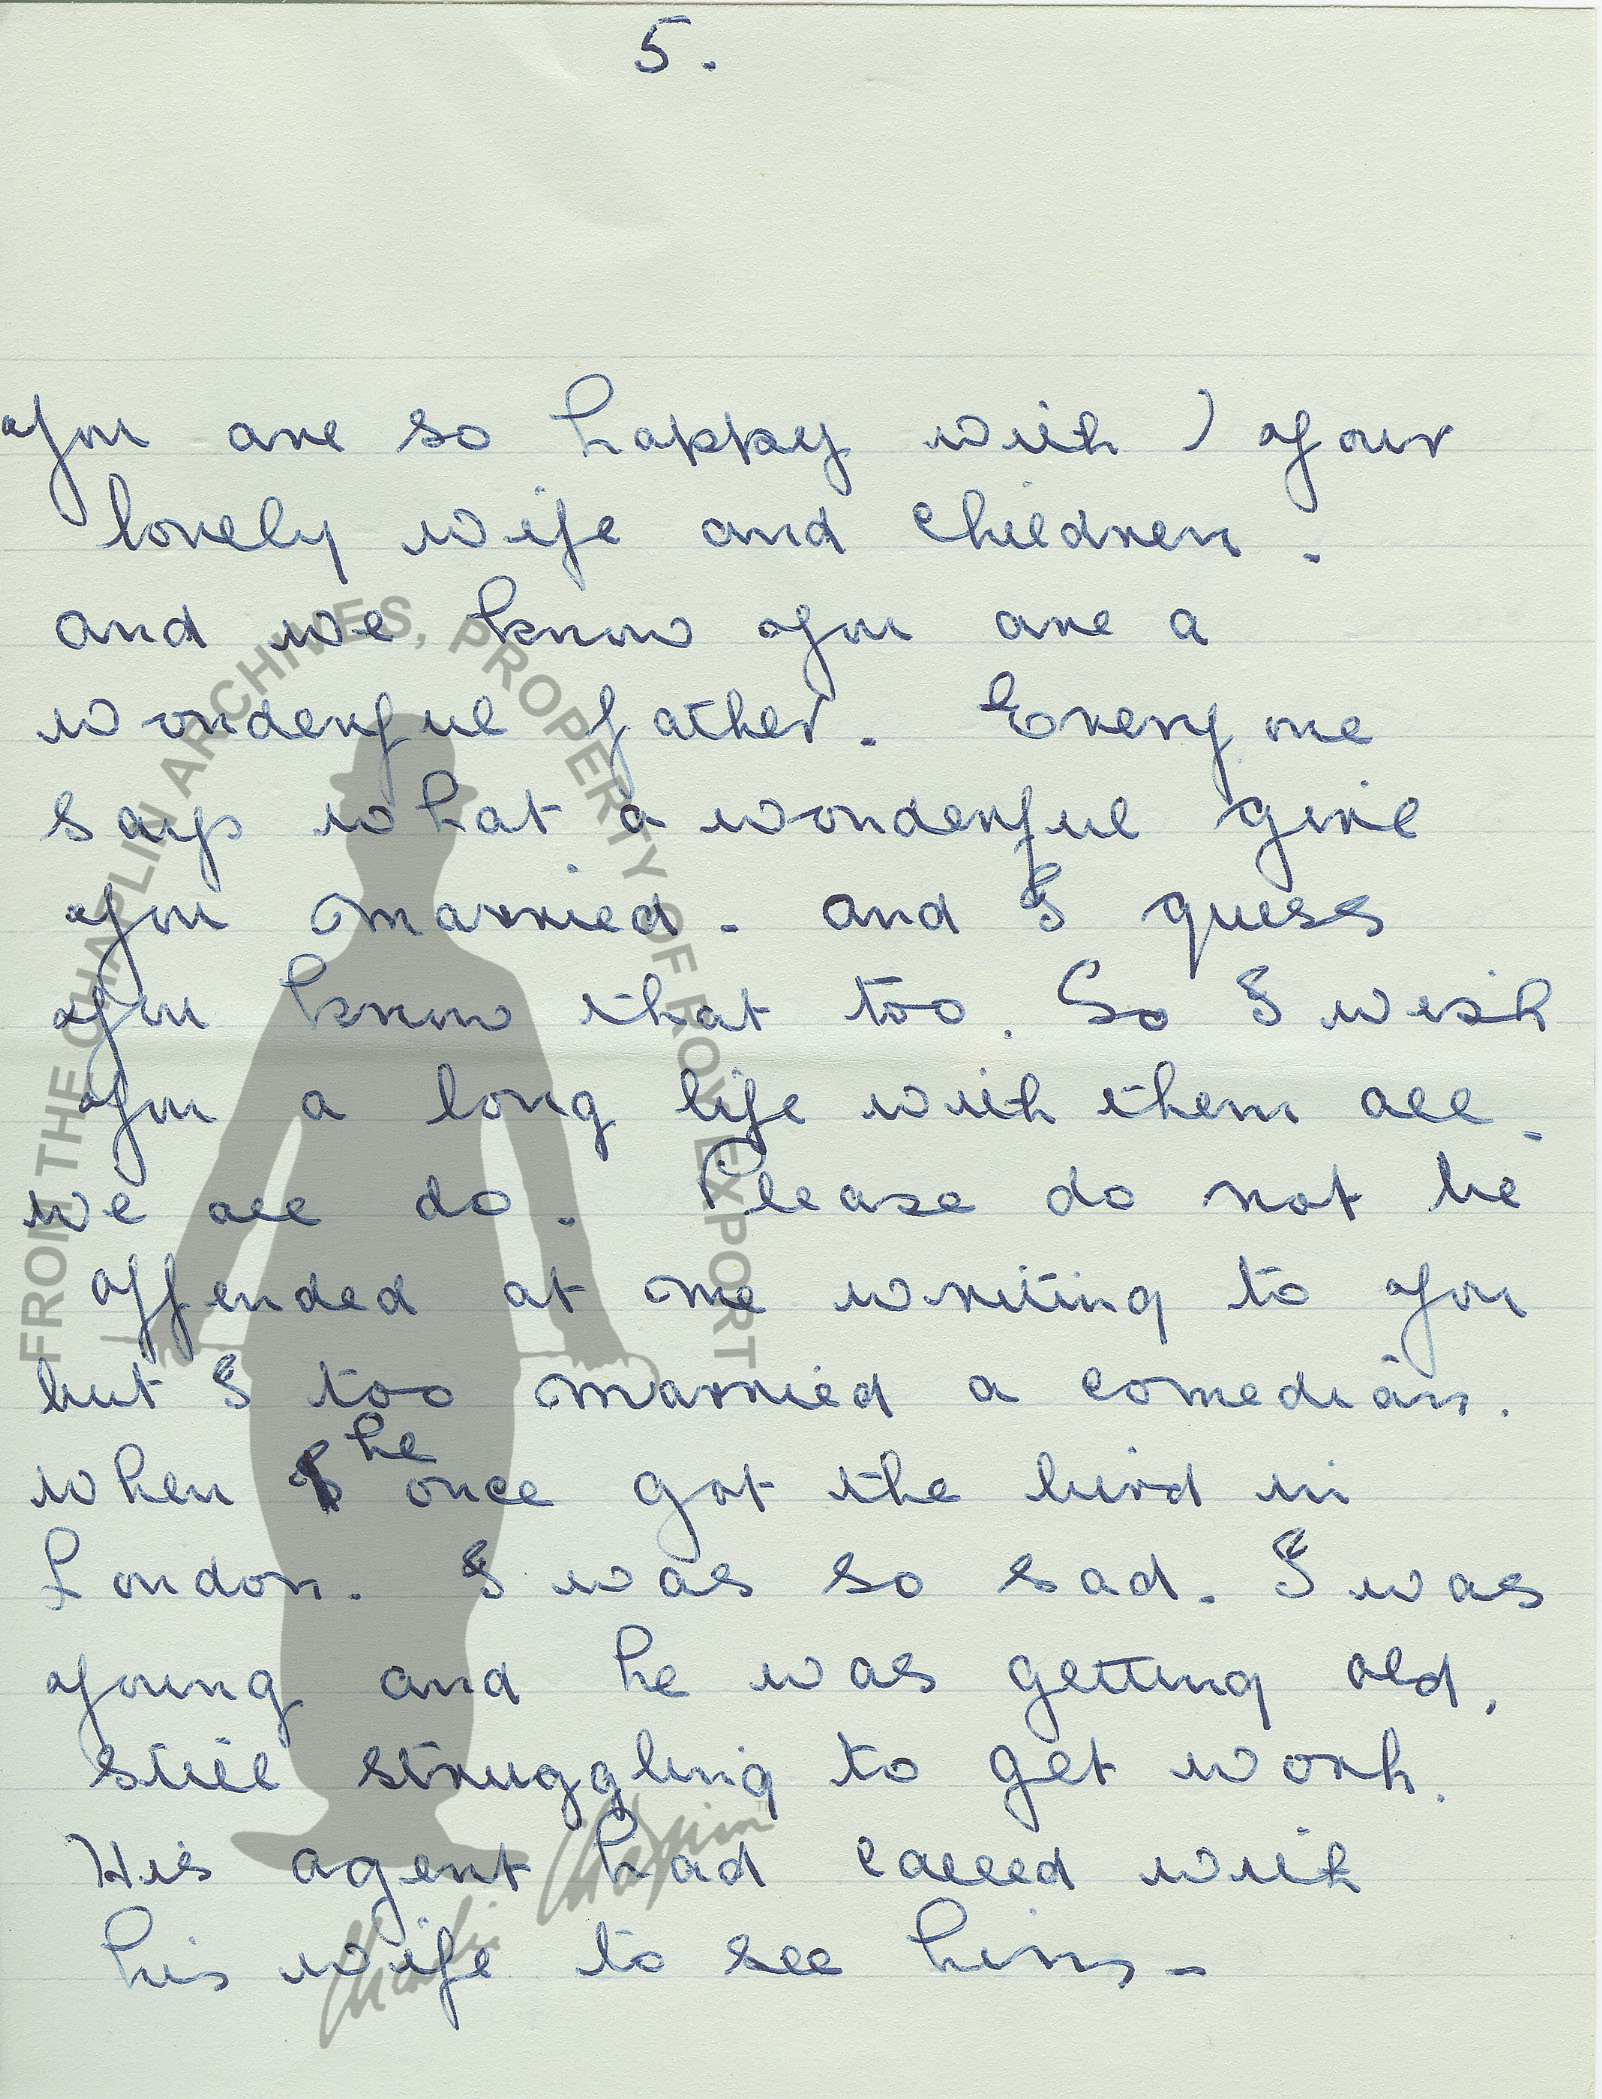 5.
you are so happy with ) your
lovely wife and children.
and we know you are a
wonderful father. Every one
says what a wonderful girl
you married. and I guess
you know that too. So I wish
you a long life with them all.
we all do. Please do not be
offended at me writing to you
but I too married a comedian.
when he once got the bird in
London. I was so sad. I was
young and he was getting old,
still struggling to get work.
His agent had called with
his wife to see him -
FROM THE CHAPLIN ARCHIVES, PROPERTY OF ROY EXPORT
Charlie Chaplin